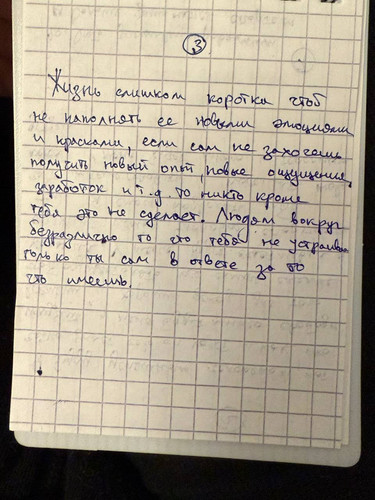 3
Жизнь слишком коротка чтоб
не наполнять ее новыми эмоциями
и красками, если сам не захочешь
получить новый опыт, новые ощущения,
заработок и т.д. то никто кроме
тебя это не сделает. Людям вокруг
безразлично то что тебя не устраивает
только ты сам в ответе за то
что имеешь.